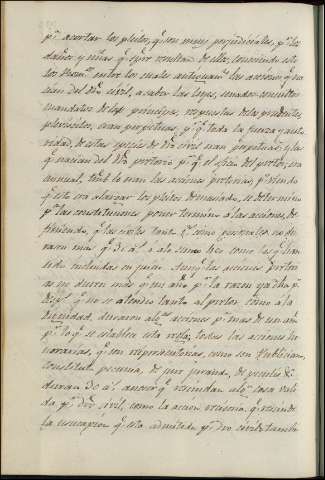 pª acortar los pleitos, qº son muy perjudiciales, pº los
daños y riñas qº pr resultan de ellos, conociendo esto
los Roms entre los cuales antiguamte las acciones qº na
cian del dro civil, a saber las leyes, senados consultos
mandatos de los principes, respuestas de los prudentes,
plebiscitos, eran perpetuas, pr qº toda la fuerza y auto
ridad, de estas especies de dro civil eran perpetuas; y las
qº nacian del dro pretorio pr qº el oficio del pretor, era
annual, tambº lo eran las acciones pretorias; pº viendo
qº esto era alargar los pleitos demasiado, se determinó
pr las constituciones poner termino a las acciones, de
finiendo, qº las civiles tanto como generales no du
rasen mas qº 30 aº ó 40 sino los como las qº han
sido incluidas en juicio. Aunqº las acciones pretori
as no duren mas qº un año, pr la razon ya dha, pº
despº qº no se atendió tanto al pretor como a la
dignidad, duraron algs acciones pr mas de un año
pr lo qº se establece esta regla, todas las acciones ho
norarias, qº son reipersecutorias, como son Publiciana,
Constituta pecunia, de jure jurando, de peculio &c
duran 30 aº, aunqº rescindan algª cosa vali
da pr dro civil, como la accion rescisoria qº rescinde
la usucapion qº esta admitida pr dro civil tambº